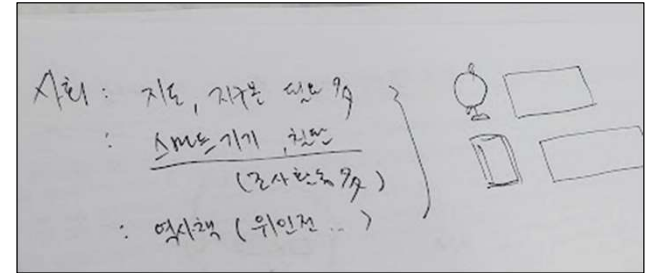 사회 : 지도, 지구본 필요
: 스마트기기, 칠판
(조사활동)
: 역사책 (위인전 ..)